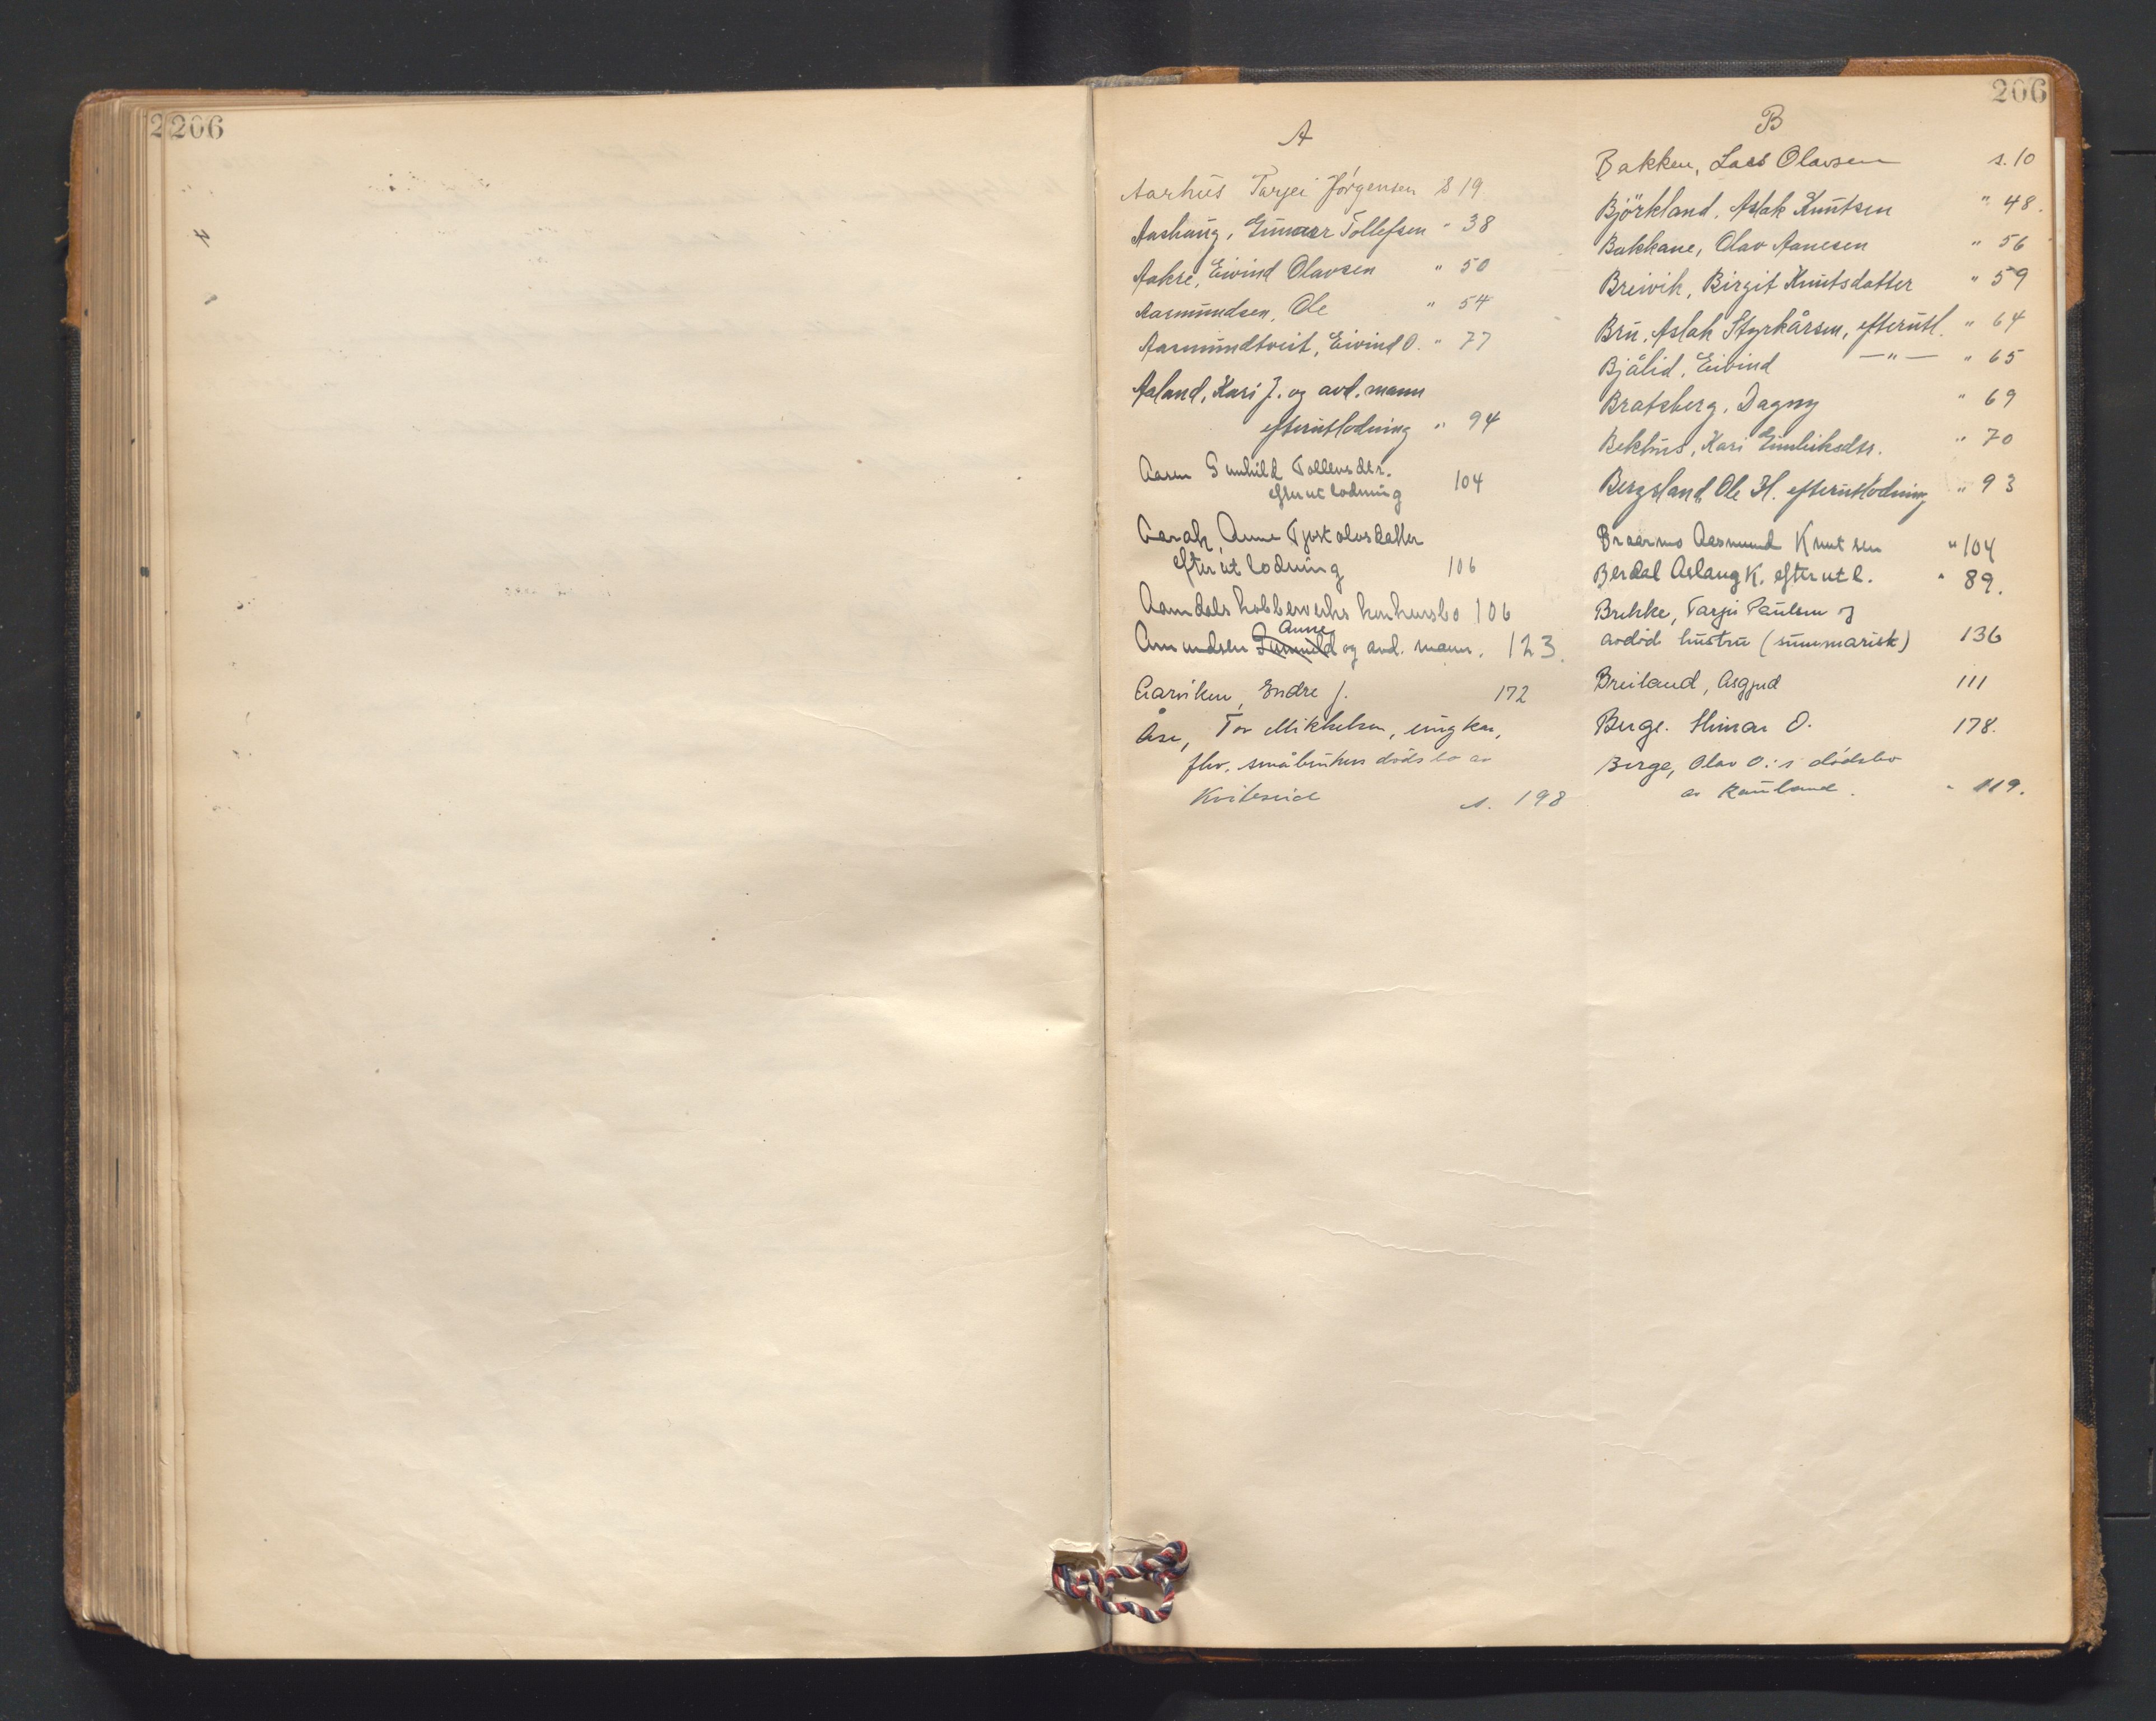 206
206
A
Aarhus Tarjei Jørgensen S 19
Aashaug, Gunnar Tollefsen " 38
Aakre, Eivind Olavsen " 50
Aasmundsen, Ole " 54
Aasmundtveit, Eivind O. " 77
Aaland, Kari J. og avd. mann
efterutlodning " 94
Aasen Gunhild Tollevsdtr.
efterutlodning 104
Aarak, Anne Tjostolvsdatter
efterutlodning 106
Aamdals kobberverks konkursbo 106
Anne
Amundsen Gunnuld og avd. mann. 123.
Aarviken, Endre J. 172
Åse, Tov Mikkelsen, ungkar,
fhv. småbrukers dødsbo av
Kviteseid s. 198
B
Bakken, Lars Olavsen s. 10
Björkland, Aslak Knutsen " 48.
Bakkane, Olav Aanesen " 56
Breivik, Birgit Knutsdatter " 59
Bru, Aslak Styrkårsen, efterutl. " 64
Bjålid, Eivind — " — " 65
Bratsberg, Dagny " 69
Bekhus, Kari Gunleiksdtr. " 70
Bergsland, Ole H. efterutlodning " 93
Aasmund Knutsen " 104
Berdal Aslaug K. efterutl. " 89.
Brekke, Tarjei Paulsen og
avdöd hustru (summarisk) 136
Breiland, Asgjerd 111
Berge. Steinar O. 178.
Berge, Olav O.'s dödsbo
av Rauland. " 119.